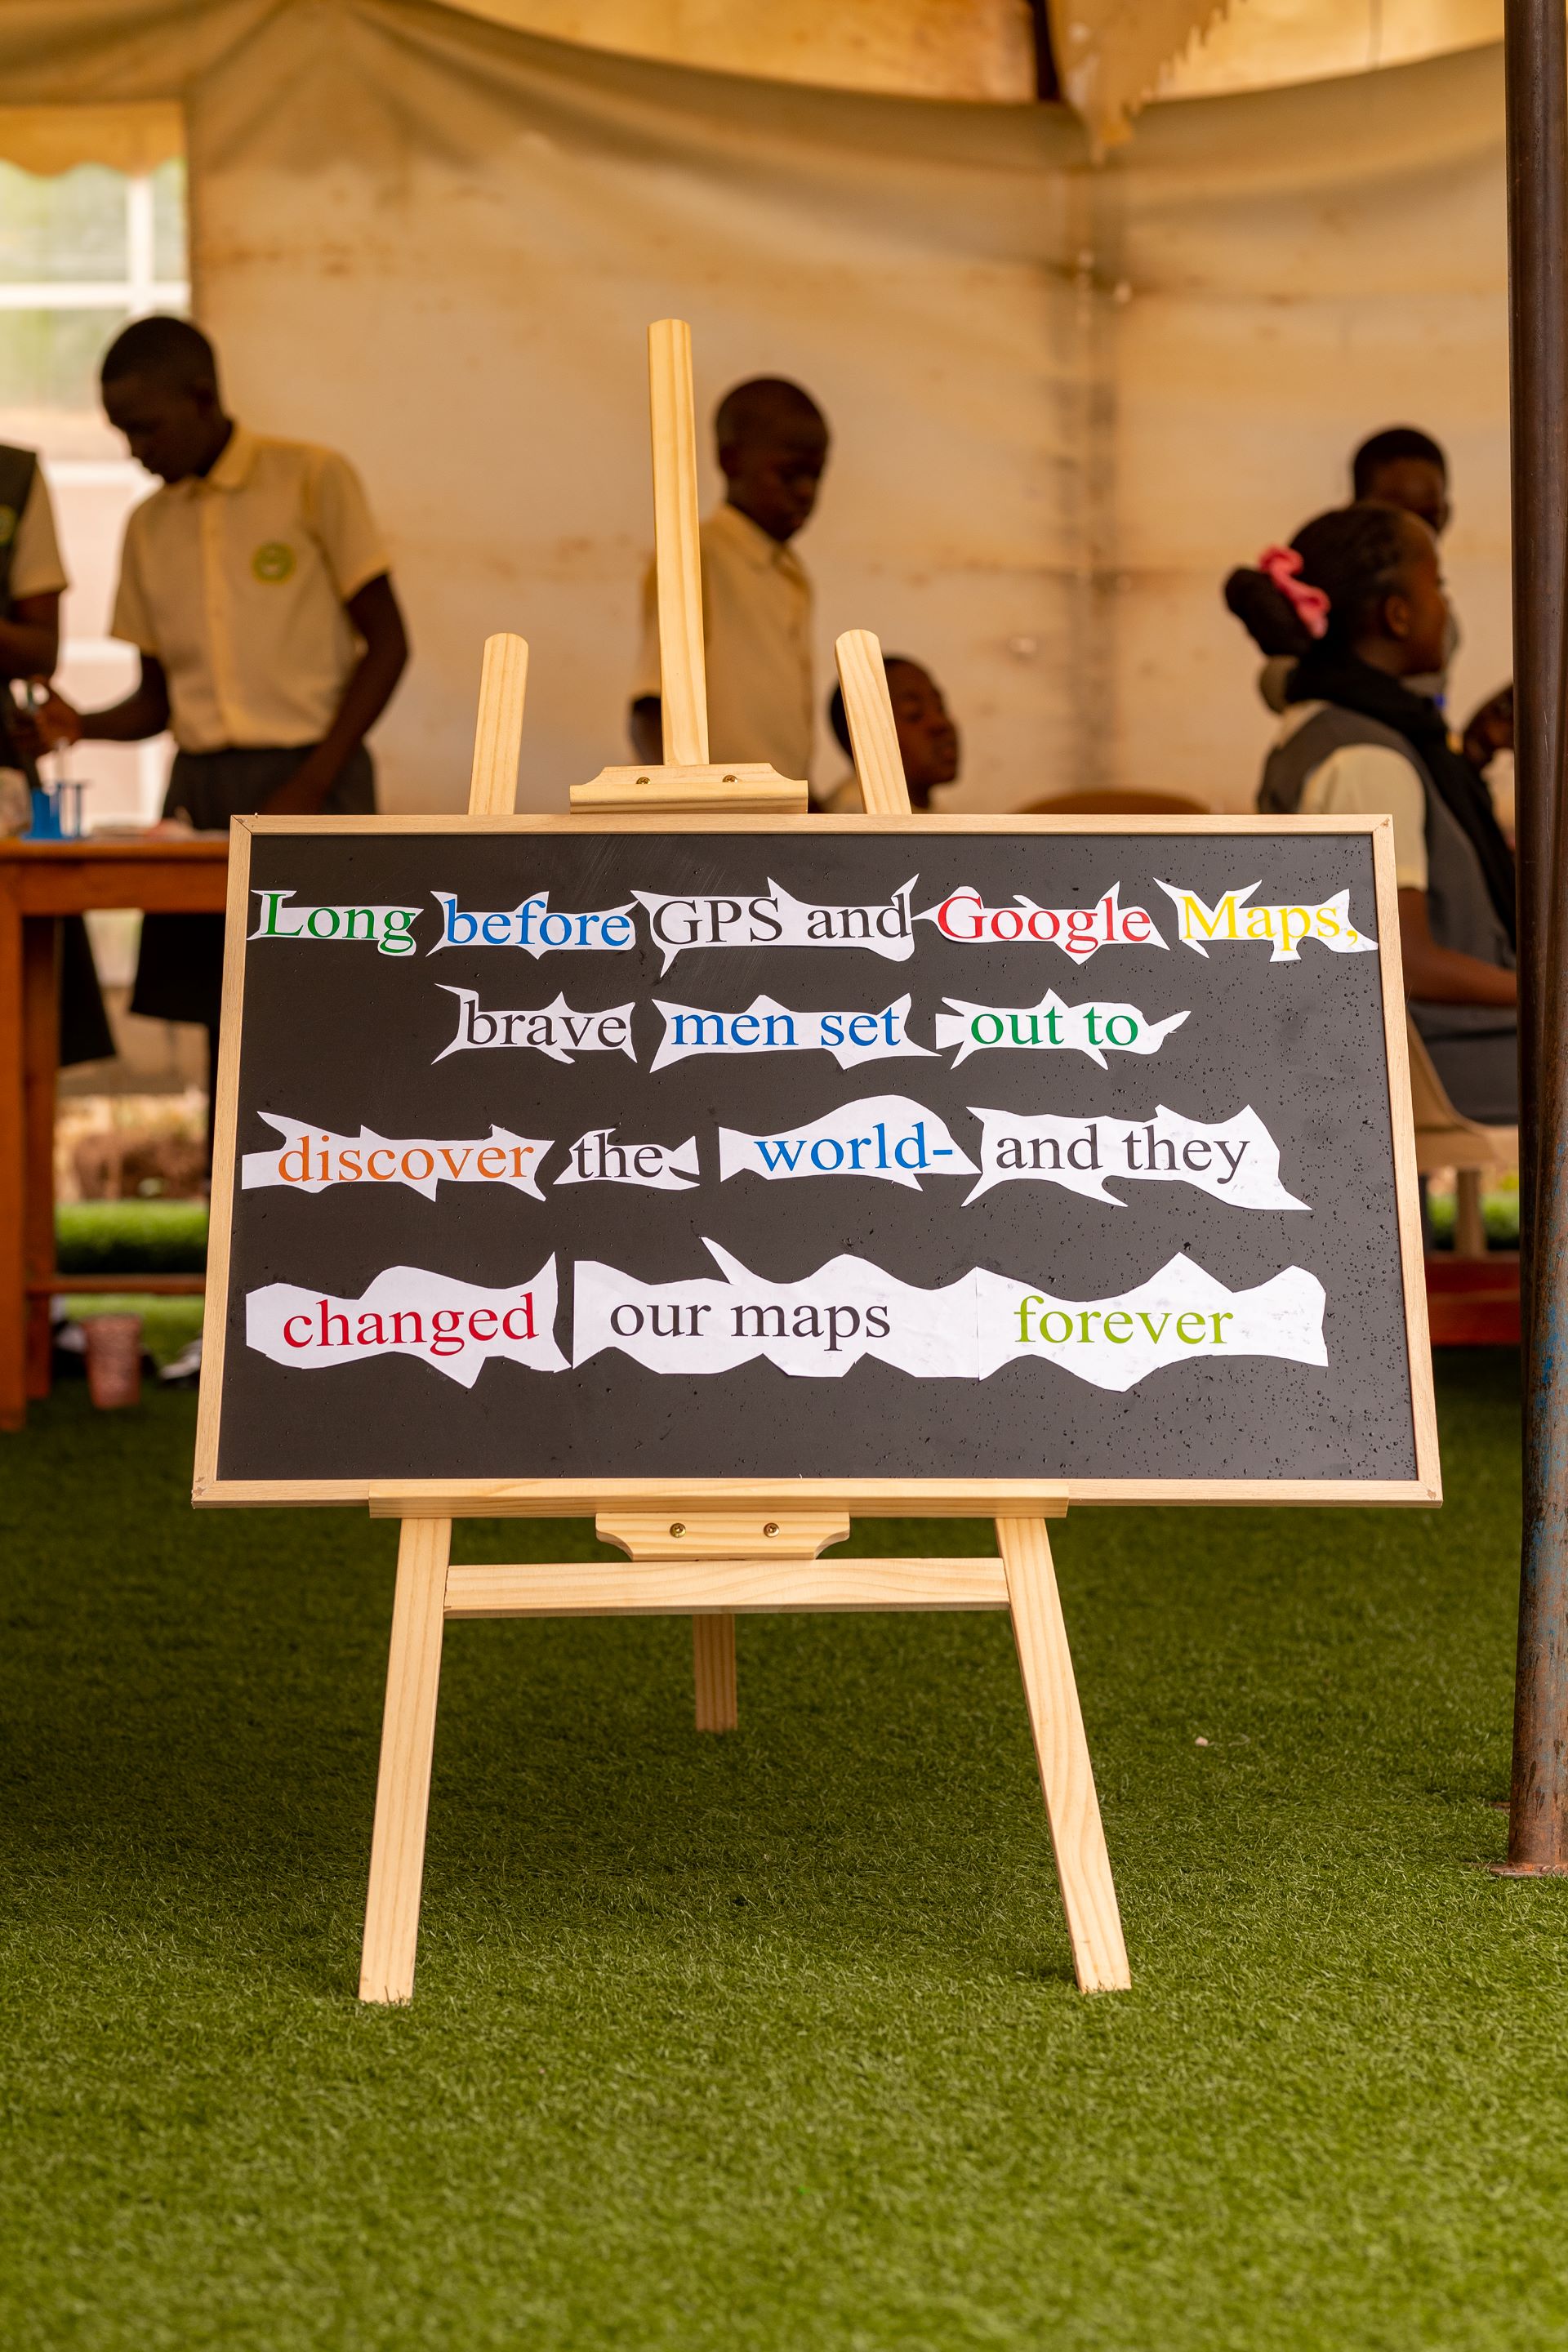 Long before GPS and Google Maps,
brave men set out to
discover the world- and they
changed our maps forever